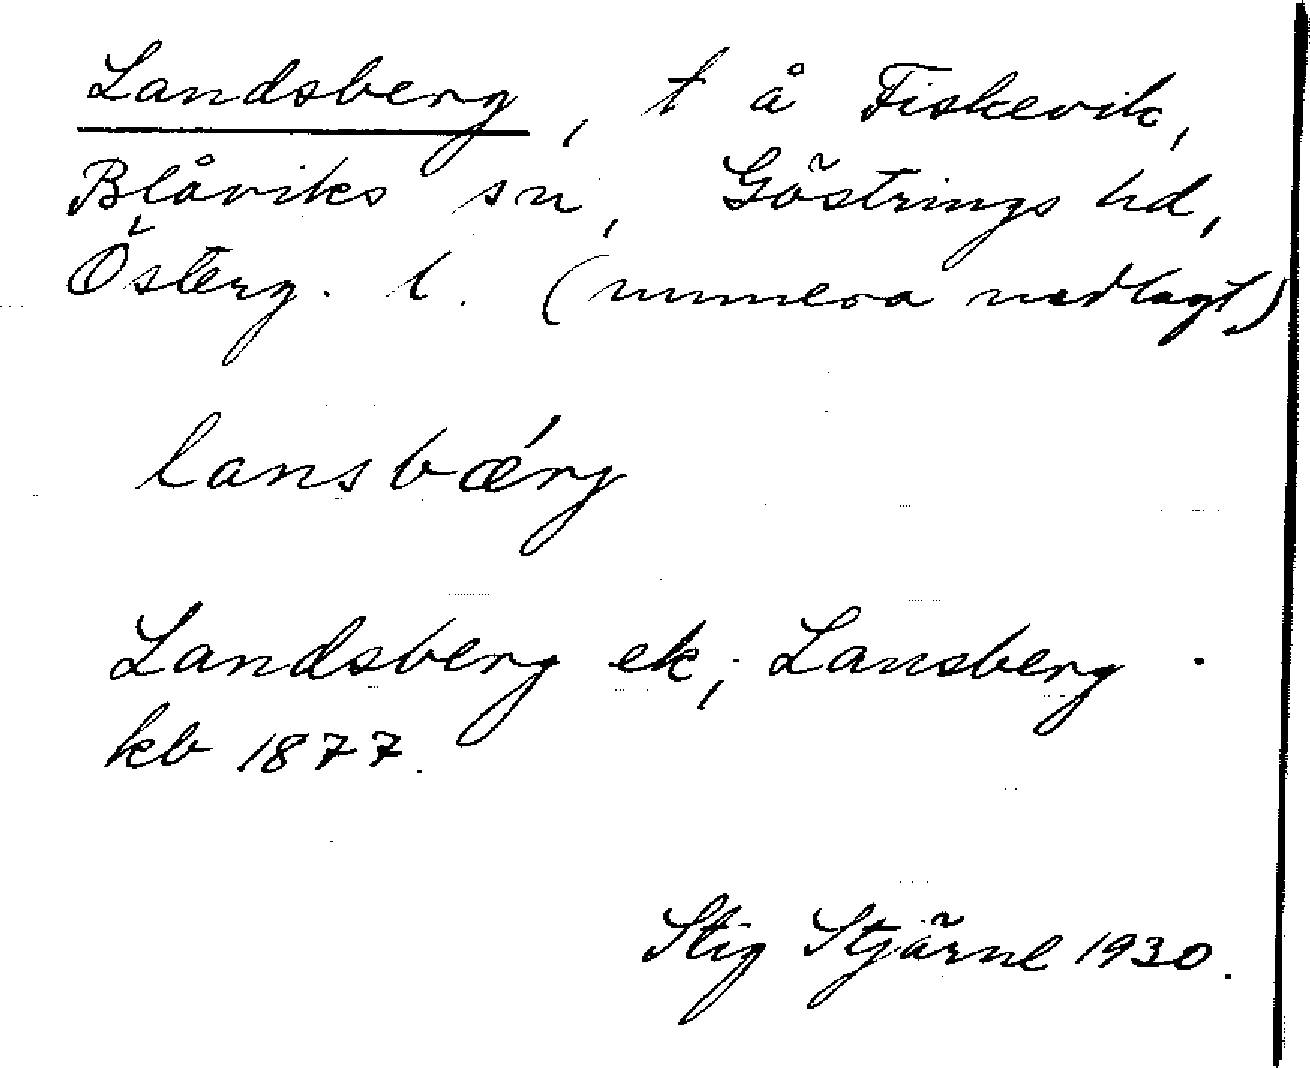 Landsberg, t å Fiskevik,
Blåviks sn, Göstrings hd,
Österg. l. (numera nedlagt)
lansbǽrg
Landsberg ek; Lansberg
kb 1877.
Stig Stjärne 1930.